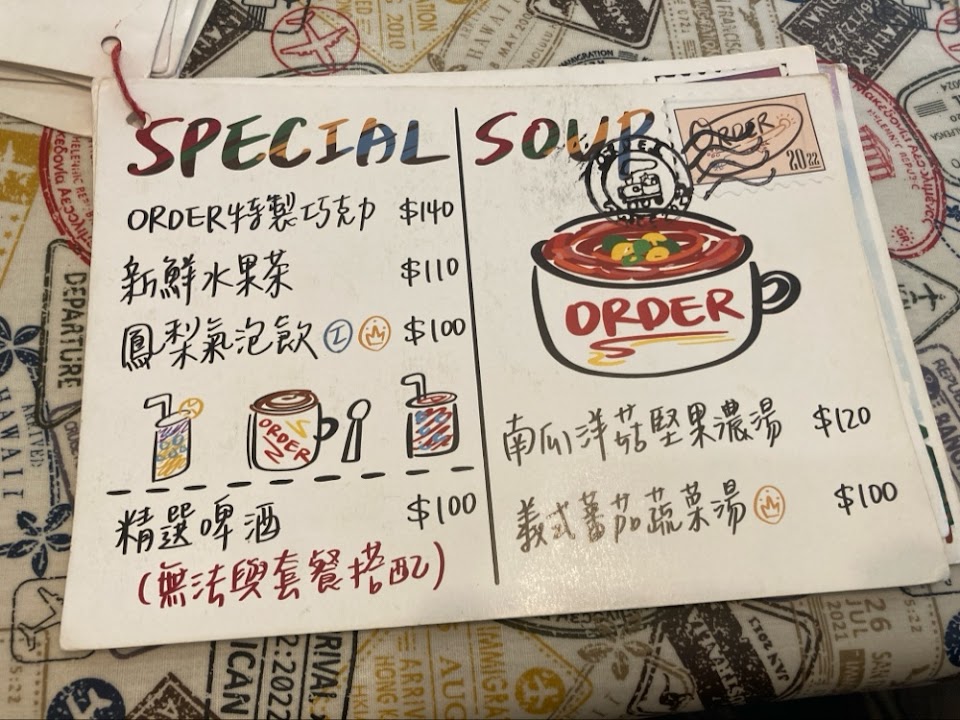 SPECIAL
ORDER特製巧克力 $140
新鮮水果茶 $110
鳳梨氣泡飲 I $100
ORDER
精選啤酒 $100
(無法與套餐搭配)
SOUP
ORDER
2022
ORDER
ORDER
南瓜洋菇堅果濃湯 $120
義式蕃茄蔬菜湯 $100
DEPARTURE
HAWAII
ARRIVED
2010
HAWAII
MAY
IMMIGRATION
2024
26
JUL
2021
JAN 2023
ARRIVAL
ARRIVE
HONG KONG
IMMIGRA
AUG